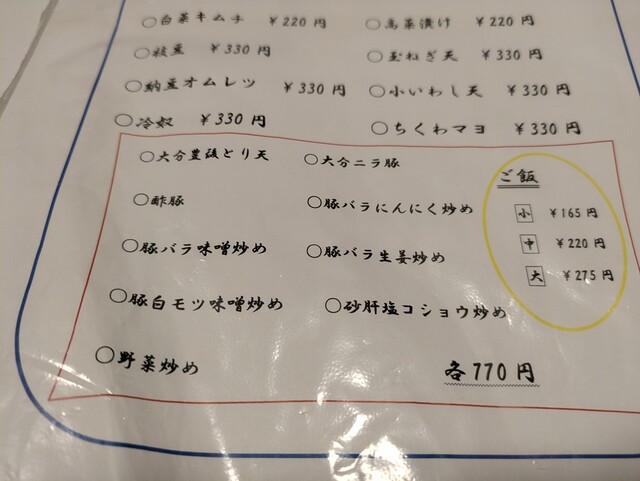 ○白菜キムチ ¥220円 ○高菜漬け ¥220円
○枝豆 ¥330円 ○玉ねぎ天 ¥330円
○納豆オムレツ ¥330円 ○小いわし天 ¥330円
○冷奴 ¥330円 ○ちくわマヨ ¥330円
○大分豊後とり天 ○大分ニラ豚
○酢豚 ○豚バラにんにく炒め
○豚バラ味噌炒め ○豚バラ生姜炒め
○豚白モツ味噌炒め ○砂肝塩コショウ炒め
○野菜炒め 各770円
ご飯
小 ¥165円
中 ¥220円
大 ¥275円